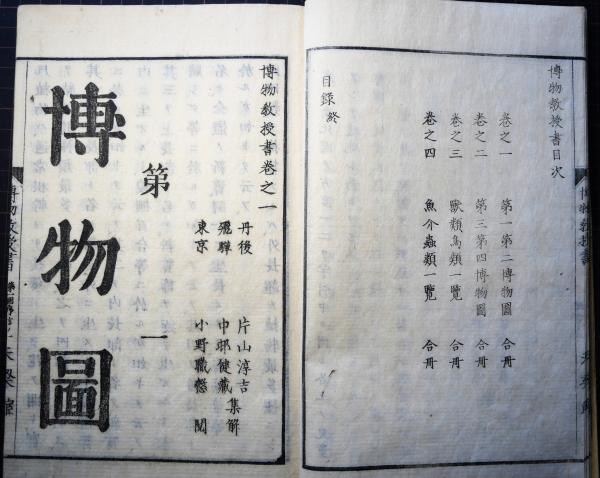 博物教授書目次
卷之一 第一第二博物圖 合冊
卷之二 第三第四博物圖 合冊
卷之三 獸類鳥類一覽 合冊
卷之四 魚介蟲類一覽 合冊
目録終
博物教授書
博物教授書卷之一
丹後 片山淳吉
飛騨 中邨健藏 集解
東京 小野職愨 閲
第一
博物圖
博物教授書